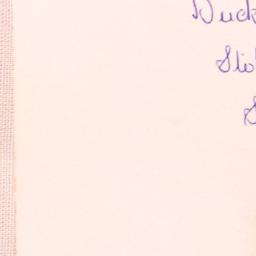 Duck
Sto
S